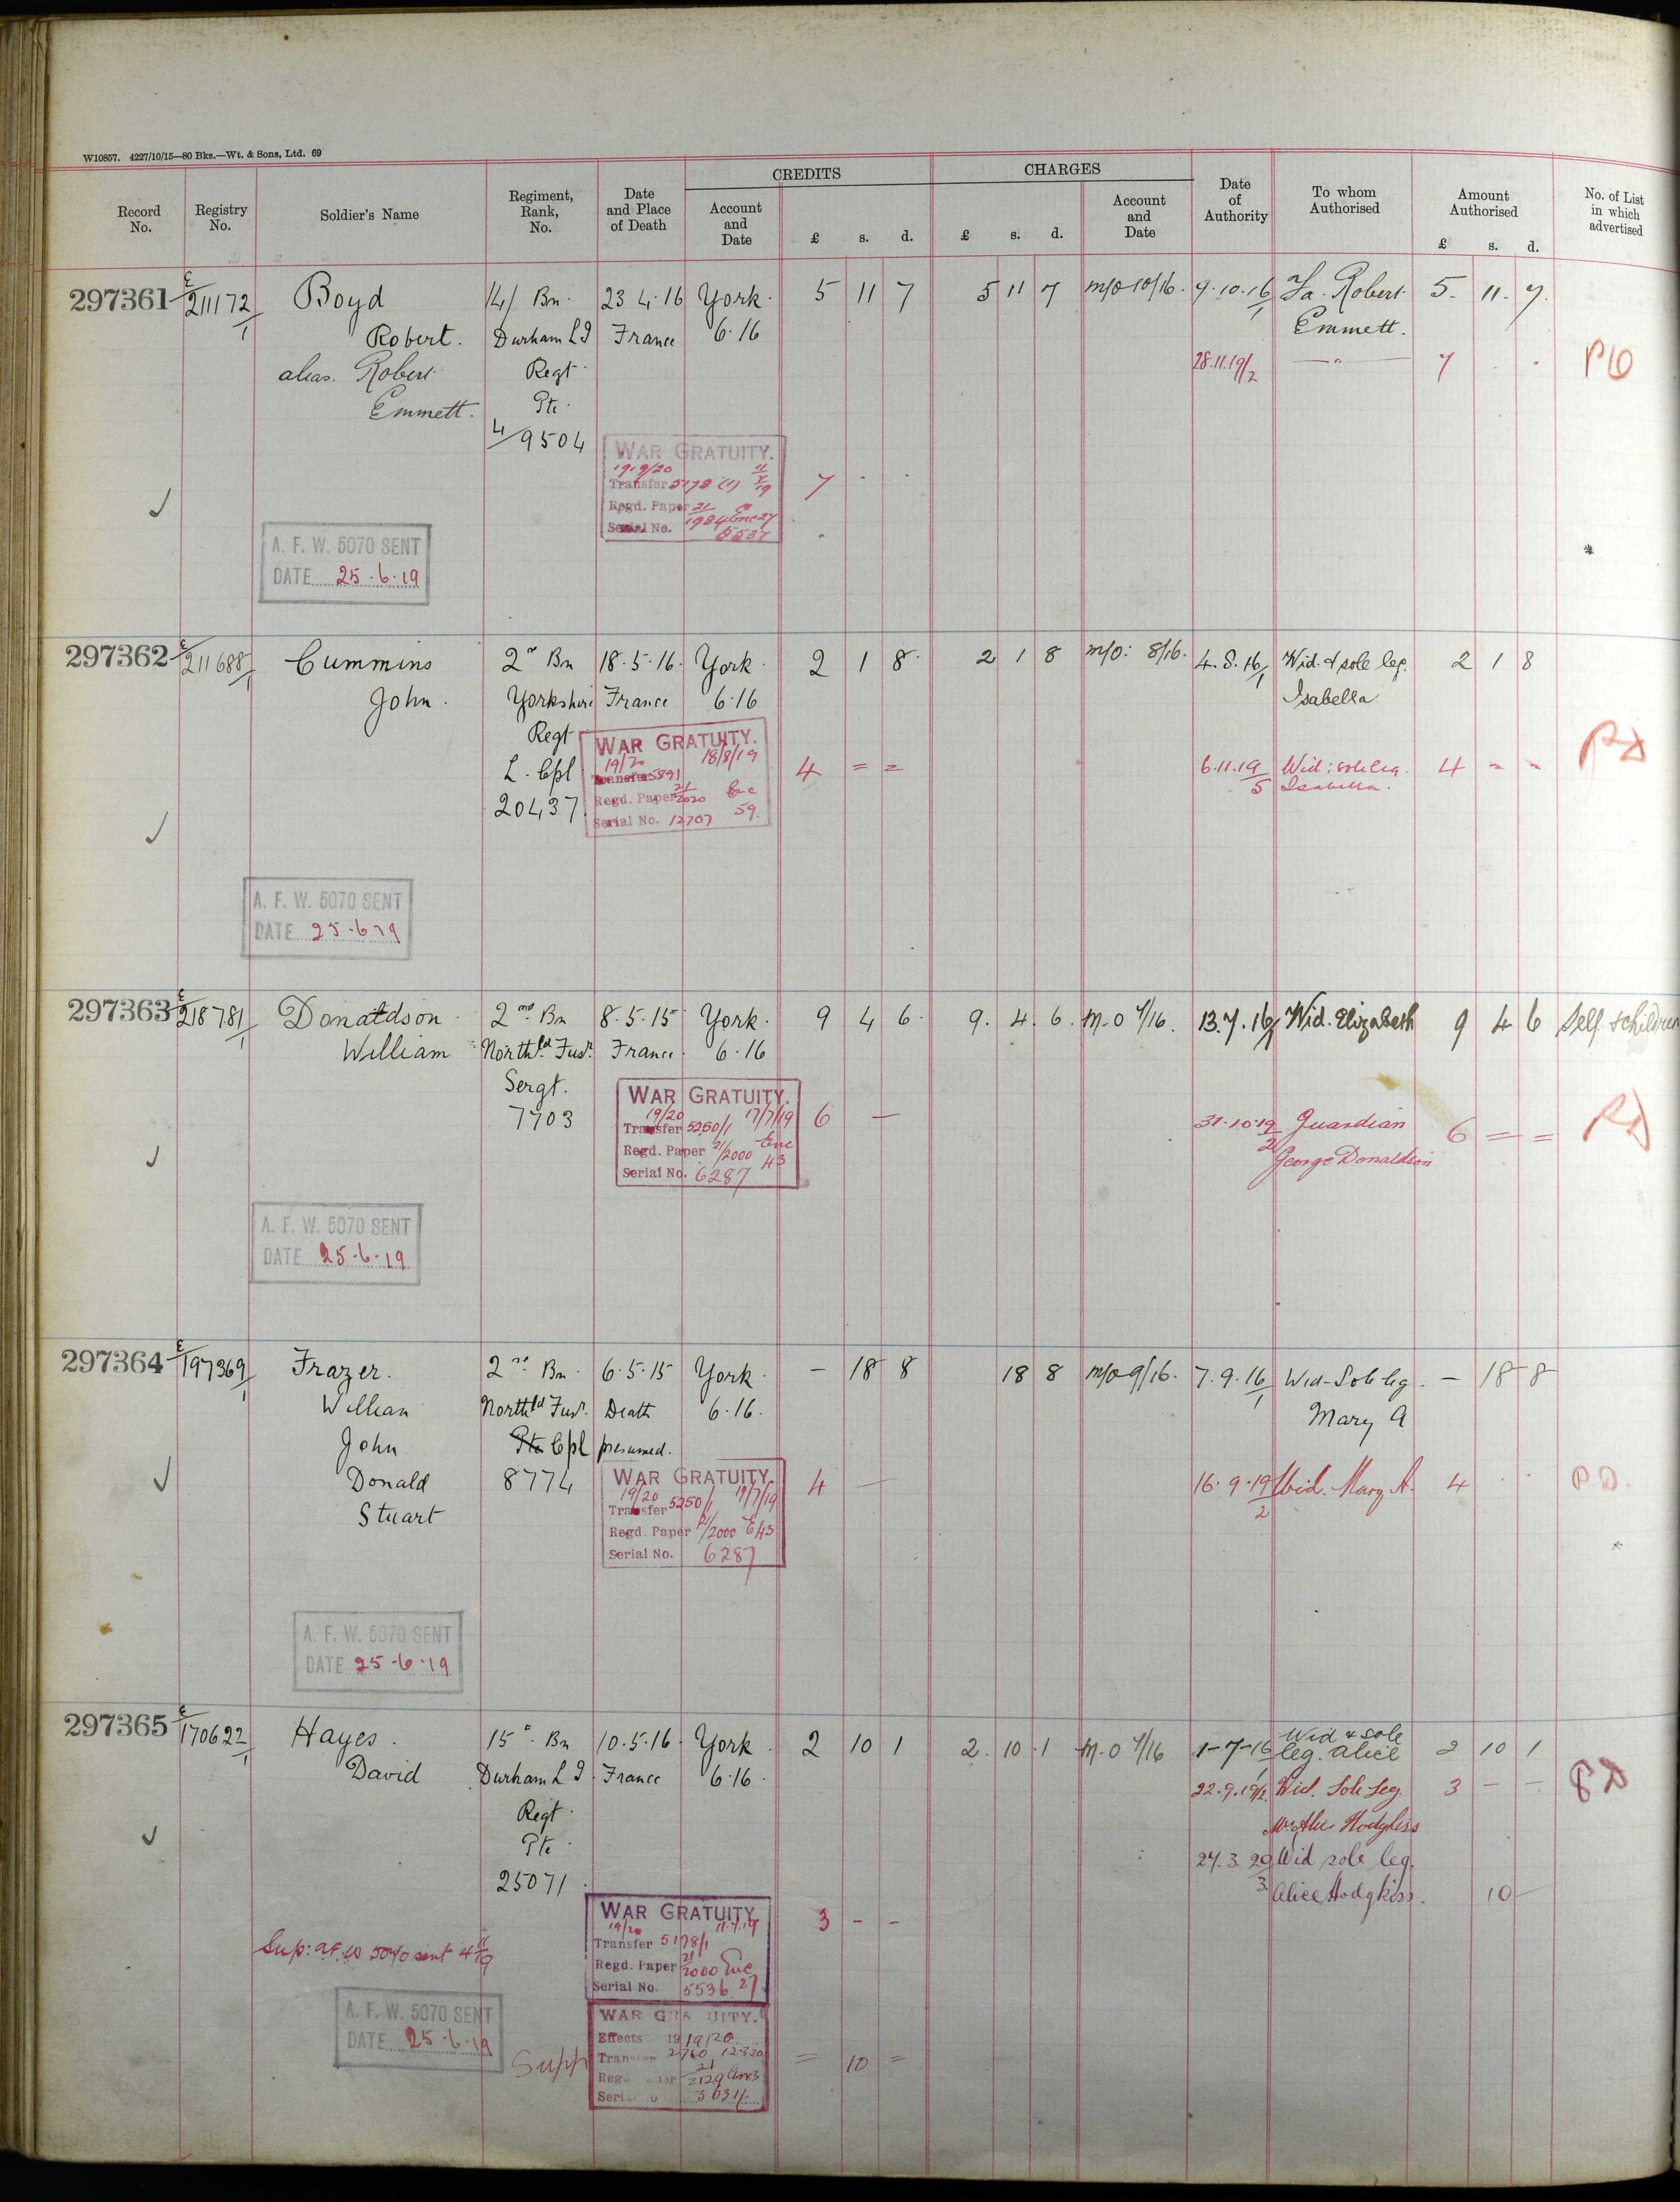 W10857. 4227/10/15—80 Bks.—Wt. & Sons, Ltd. 69
CREDITS CHARGES
Record No. Registry No. Soldier's Name Regiment, Rank, No. Date and Place of Death Account and Date £ s. d. £ s. d. Account and Date Date of Authority To whom Authorised Amount Authorised £ s. d. No. of List in which advertised
297361 E/211172/1 Boyd 14/ Bn. 23 4.16 York. 5 11 7 5 11 7 m/o 10/16. 9.10.16/1 Fa. Robert 5. 11. 7.
Robert. Durham L I France 6.16 Emmett.
alias. Robert Regt. 28.11.19/2 —"— 7 . .
Emmett. Pte.
4/9504
WAR GRATUITY.
1919/20
Transfer 5178 (1) 7 . .
Regd. Paper 21/1984 Enc 27
Serial No. 5537
A. F. W. 5070 SENT
DATE 25.6.19
297362 E/211688/1 Cummins 2nd Bn 18.5.16. York. 2 1 8. 2 1 8 m/o: 8/16. 4.8.16/1 Wid. & sole leg. 2 1 8
John. Yorkshire France 6.16 Isabella
Regt
L. Cpl
20437
WAR GRATUITY.
19/20 18/8/19
Transfer 5891 4 = = 6.11.19/5 Wid: sole leg. Isabella. 4 = =
Regd. Paper 21/2020 Enc 59.
Serial No. 12707
A. F. W. 5070 SENT
DATE 25.6.19
297363 E/218781/1 Donaldson. 2nd Bn 8.5.15 York. 9 4 6. 9. 4. 6. M.O 7/16. 13.7.16/1 Wid. Elizabeth 9 4 6 Self & children
William North'ld Fusr. France. 6.16
Sergt.
7703
WAR GRATUITY.
19/20 17/7/19 6 —
Transfer 5250/1 31.10.19/2 Guardian 6 = =
Regd. Paper 21/2000 Enc 43 George Donaldson
Serial No. 6287
A. F. W. 5070 SENT
DATE 25.6.19
297364 E/197369/1 Frazer. 2nd Bn. 6.5.15 York. — 18 8 18 8 m/o 9/16. 7.9.16/1 Wid-Sole leg. — 18 8
William North'ld Fusr. Death 6.16. Mary A
John Pte Cpl presumed.
Donald 8774
Stuart
WAR GRATUITY.
19/20 17/7/19 4 — 16.9.19/2 Wid. Mary A. 4 . .
Transfer 5250/1
Regd. Paper 21/2000 E 43
Serial No. 6287
A. F. W. 5070 SENT
DATE 25.6.19
297365 E/170622/1 Hayes. 15th Bn 10.5.16. York. 2 10 1 2. 10. 1 M.O 7/16 1-7-16/1 Wid & sole leg. Alice 2 10 1
David Durham L I. France 6.16. 22.9.19/2 Wid. Sole Leg. 3 — —
Regt. Mrs Alice Hodgkiss
Pte. 27.3.20/3 Wid sole leg.
25071. Alice Hodgkiss. 10 —
WAR GRATUITY.
19/20 11.7.19 3 — —
Transfer 5178/1
Regd. Paper 21/2000 Enc 27
Serial No. 5536
Sup: A.F.W 5070 sent 4/11/19
A. F. W. 5070 SENT
DATE 25.6.19
WAR GRATUITY.
Effects 1919/20
Supp Transfer 2760 12.3.20 = 10 =
21/2129